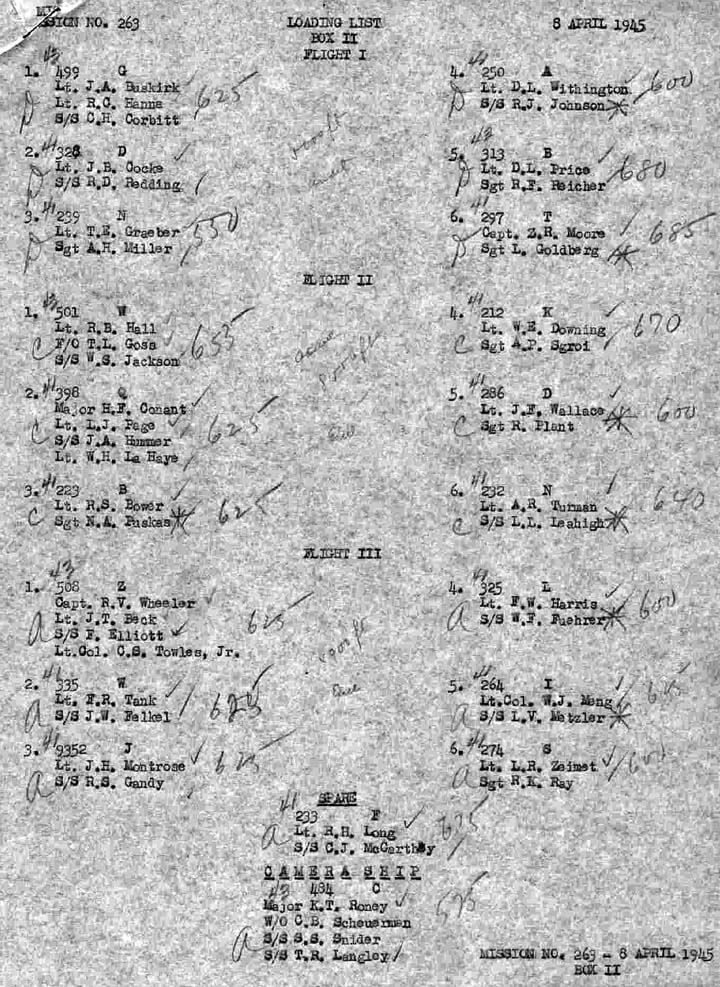 MISSION NO. 263
LOADING LIST
8 APRIL 1945
BOX II
FLIGHT I
1. 43 499 G
Lt. J.A. Buskirk
Lt. R.C. Hanna
D S/S C.H. Corbitt
625
2. 41 328 D
Lt. J.B. Cocke
D S/S R.D. Redding
3. 41 239 N
Lt. T.E. Graeber
D Sgt A.H. Miller
550
4. 41 250 A
Lt. D.L. Withington
D S/S R.J. Johnson
600
5. 43 313 B
Lt. D.L. Price
D Sgt R.F. Reicher
680
6. 41 297 T
Capt. Z.R. Moore
D Sgt L. Goldberg
685
FLIGHT II
1. 43 501 W
Lt. R.B. Hall
C F/O T.L. Goss
S/S W.S. Jackson
655
2. 41 398 Q
Major H.F. Conant
Lt. L.J. Page
C S/S J.A. Hummer
Lt. W.H. La Haye
625
3. 41 223 B
Lt. R.S. Bower
C Sgt N.A. Puskas
625
4. 41 212 K
Lt. W.E. Downing
C Sgt A.P. Sgroi
670
5. 41 286 D
Lt. J.F. Wallace
C Sgt R. Plant
600
6. 41 232 N
Lt. A.R. Turman
C S/S L.L. Leahigh
640
8000ft
FLIGHT III
1. 43 508 Z
Capt. R.V. Wheeler
Lt. J.T. Beck
a S/S F. Elliott
Lt.Col. C.S. Towles, Jr.
625
2. 41 335 W
Lt. F.R. Tank
a S/S J.W. Felkel
625
3. 41 9352 J
Lt. J.H. Montrose
a S/S R.S. Gandy
625
4. 41 325 L
Lt. F.W. Harris
a S/S W.F. Fuehrer
600
5. 41 264 I
Lt.Col. W.J. Meng
a S/S L.V. Metzler
6. 41 274 S
Lt. L.R. Zeimet
a Sgt R.K. Ray
600
SPARE
41 233 F
a Lt. R.H. Long
S/S C.J. McCarthey
CAMERA SHIP
43 484 C
Major K.T. Roney
W/O C.B. Scheuerman
a S/S S.S. Snider
S/S T.R. Langley
575
MISSION NO. 263 - 8 APRIL 1945
BOX II